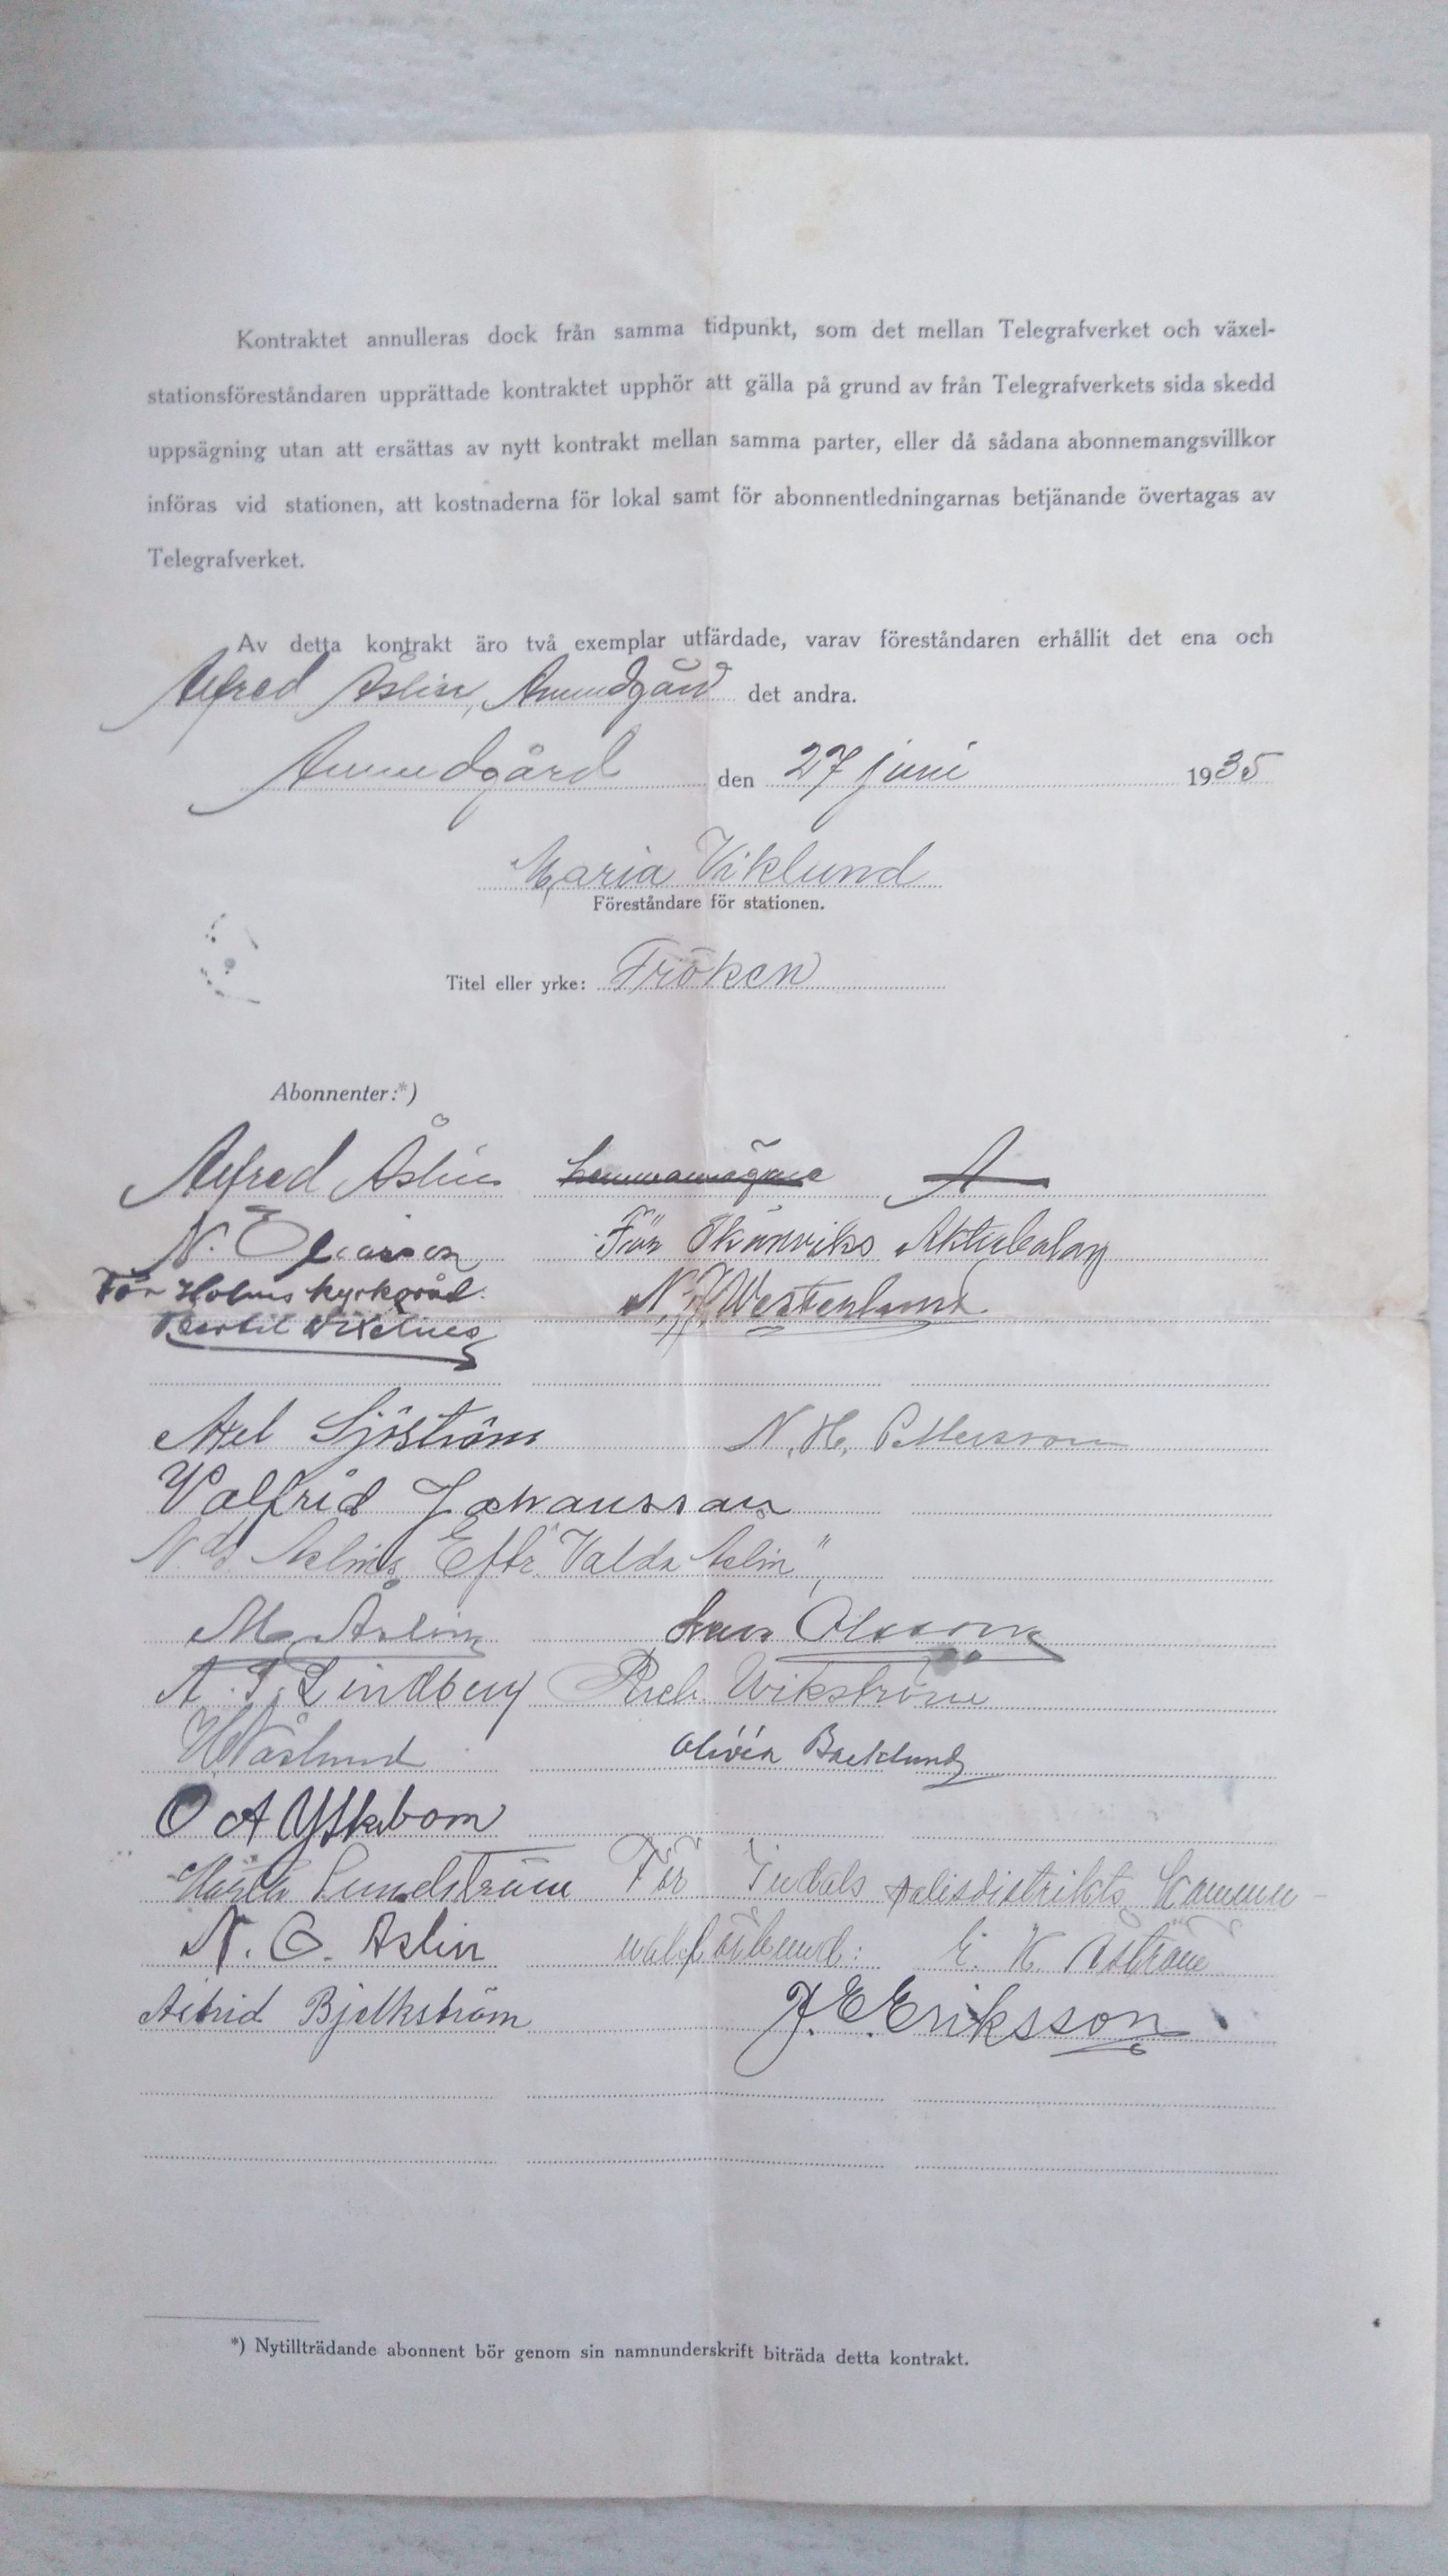 Kontraktet annulleras dock från samma tidpunkt, som det mellan Telegrafverket och växel-
stationsföreståndaren upprättade kontraktet upphör att gälla på grund av från Telegrafverkets sida skedd
uppsägning utan att ersättas av nytt kontrakt mellan samma parter, eller då sådana abonnemangsvillkor
införas vid stationen, att kostnaderna för lokal samt för abonnentledningarnas betjänande övertagas av
Telegrafverket.
Av detta kontrakt äro två exemplar utfärdade, varav föreståndaren erhållit det ena och
Alfred Åslin, Anundgård det andra.
Anundgård den 27 juni 1935
Maria Viklund
Föreståndare för stationen.
Titel eller yrke: Fröken
Abonnenter:*)
Alfred Åslin
N. För Skönviks Aktiebolag
För Holms kyrkoråd: N. J. Westerlund
Bertil
Axel Sjöström N. H. Pettersson
Valfrid Johansson
Eftr. "Valda Aslin"
M Åslin Olsson
A. J. Lindberg Wikström
Näslund Olivia Backlund
O A Ytterbom
Märta Sundström För Indals polisdistrikts kommu-
N. O. Aslin nalförbund: E. K. Åström
Astrid Bjelkström J. E. Eriksson
*) Nytillträdande abonnent bör genom sin namnunderskrift biträda detta kontrakt.